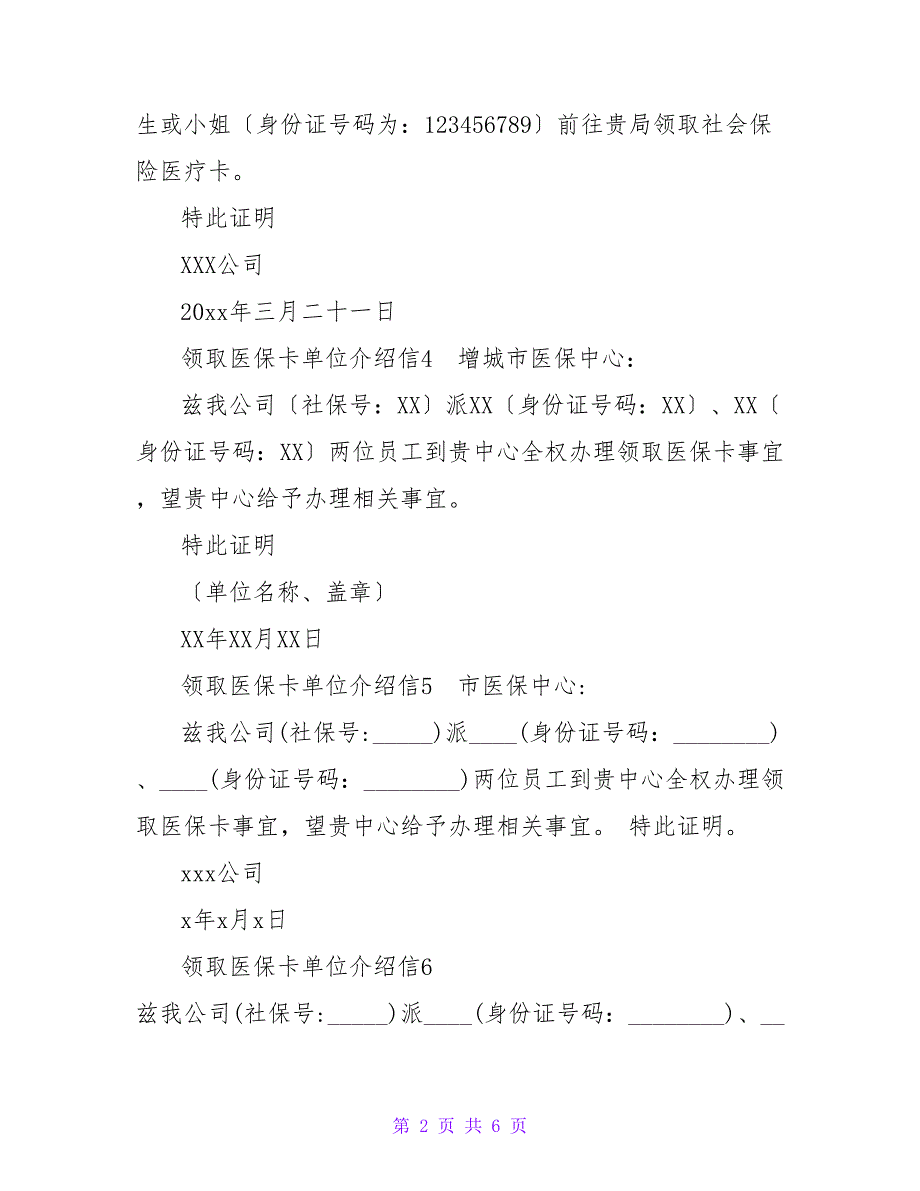 生或小姐〔身份证号码为：123456789〕前往贵局领取社会保
险医疗卡。
特此证明
XXX公司
20xx年三月二十一日
领取医保卡单位介绍信4　增城市医保中心：
兹我公司〔社保号：XX〕派XX〔身份证号码：XX〕、XX〔
身份证号码：XX〕两位员工到贵中心全权办理领取医保卡事宜
，望贵中心给予办理相关事宜。
特此证明
〔单位名称、盖章〕
XX年XX月XX日
领取医保卡单位介绍信5　市医保中心:
兹我公司(社保号:_____)派____(身份证号码：________)
、____(身份证号码：________)两位员工到贵中心全权办理领
取医保卡事宜，望贵中心给予办理相关事宜。 特此证明。
xxx公司
x年x月x日
领取医保卡单位介绍信6
兹我公司(社保号:_____)派____(身份证号码：________)、__
第 2 页 共 6 页